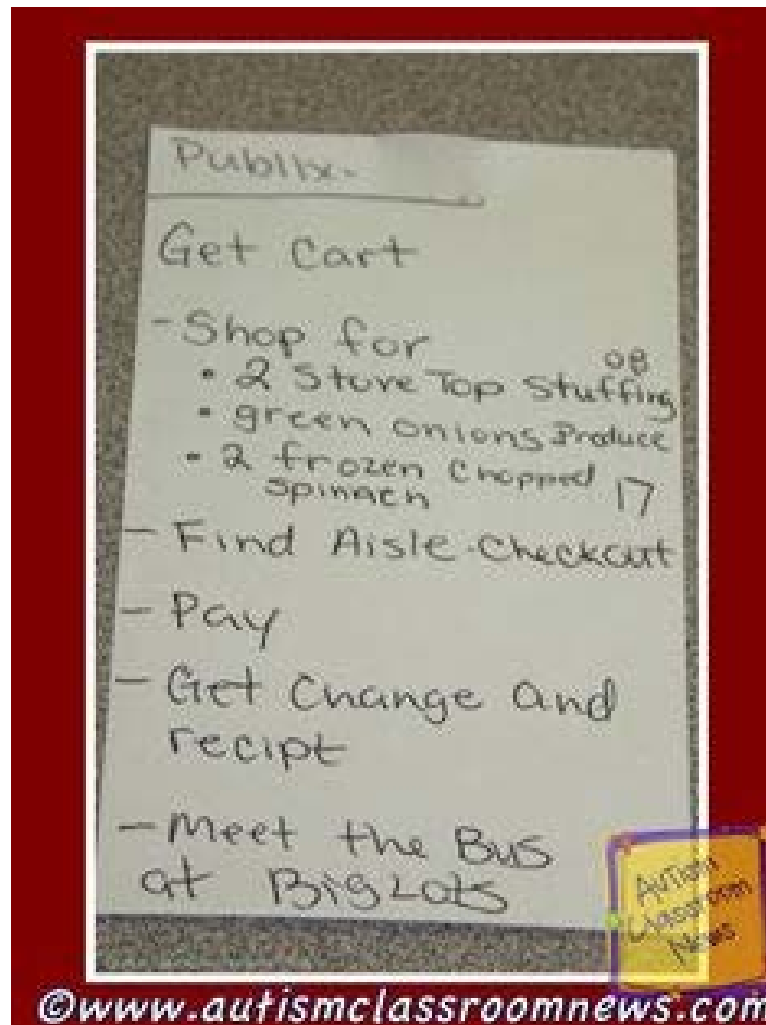 Publix-
Get Cart
- Shop for
08
• 2 Stove Top Stuffing
• green onions Produce
• 2 frozen Chopped
spinach 17
- Find Aisle-Checkout
- Pay
- Get Change and
recipt
- Meet the Bus
at Big Lots
Autism
Classroom
News
©www.autismclassroomnews.com